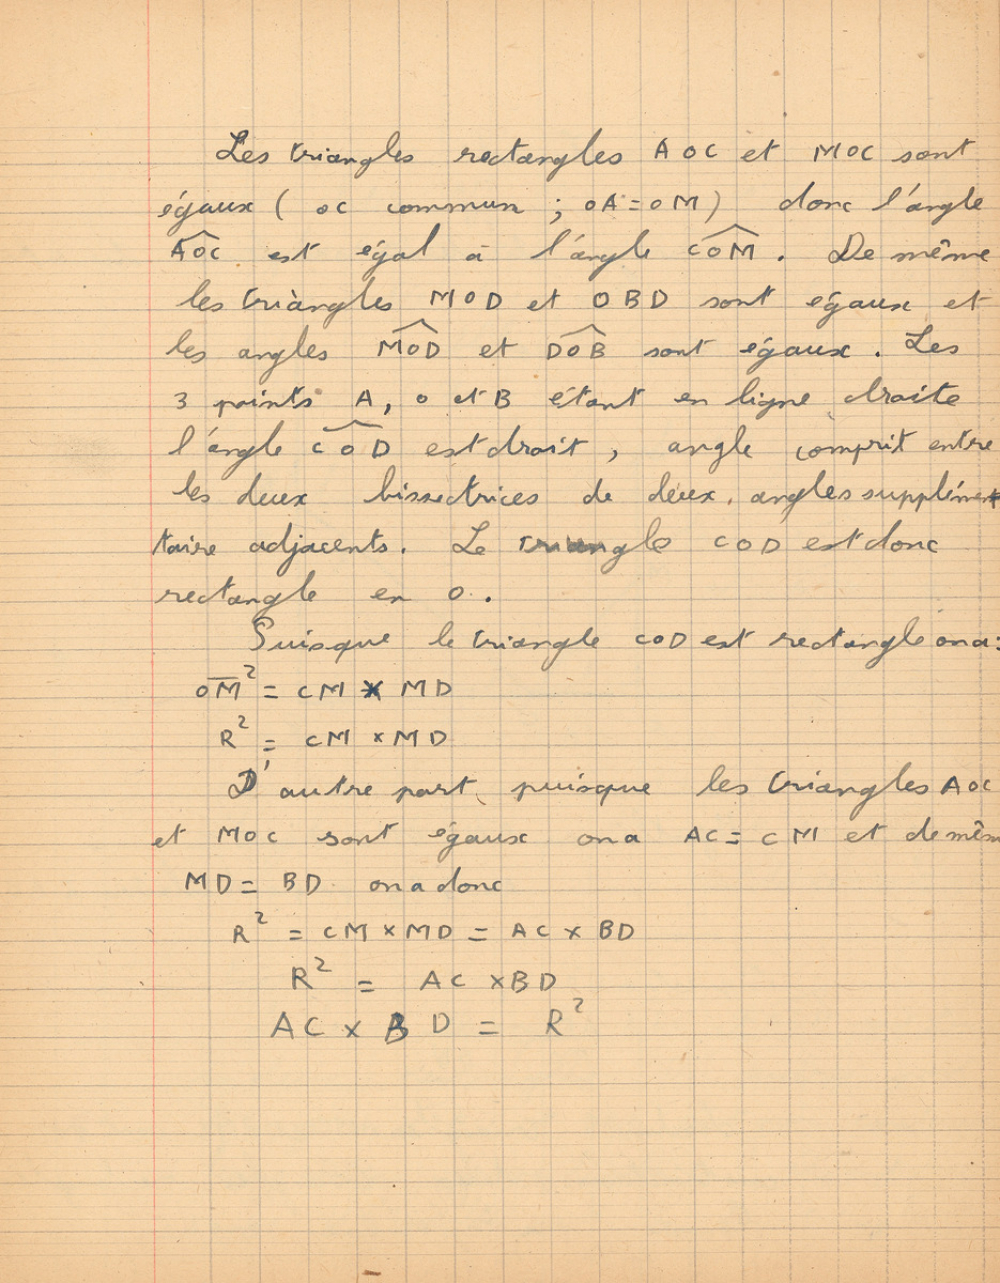 Les triangles rectangles AOC et MOC sont
égaux ( OC commun ; OA = OM ) donc l'angle
AOC est égal à l'angle COM . De même
les triangles MOD et OBD sont égaux et
les angles MOD et DOB sont égaux . Les
3 points A, O et B étant en ligne droite
l'angle COD est droit , angle comprit entre
les deux bissectrices de deux angles supplémen
taire adjacents . Le triangle COD est donc
rectangle en O .
Puisque le triangle COD est rectangle on a :
OM² = CM × MD
R² = CM × MD
D'autre part, puisque les triangles AOC
et MOC sont égaux on a AC = CM et de mêm
MD = BD on a donc
R² = CM × MD = AC × BD
R² = AC × BD
AC × BD = R²